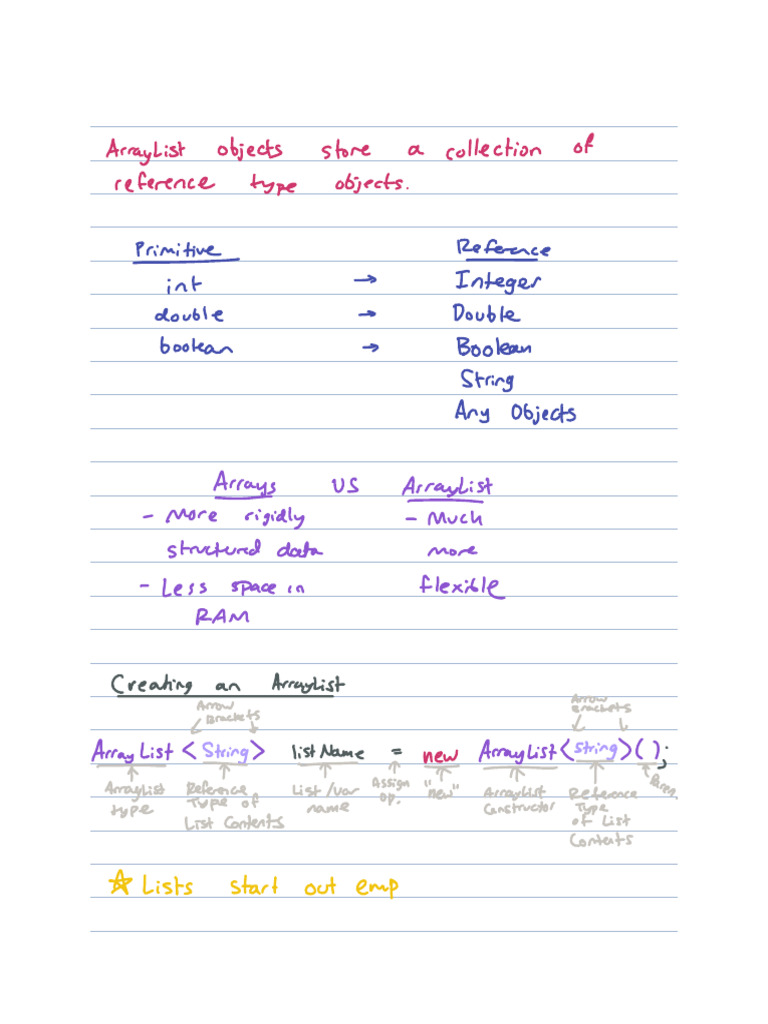 ArrayList objects store a collection of
reference type objects.
Primitive Reference
int → Integer
double → Double
boolean → Boolean
String
Any Objects
Arrays vs ArrayList
- More rigidly - Much
structured data more
- Less space in flexible
RAM
Creating an ArrayList
Arrow Brackets
Arrow Brackets
ArrayList <String> listName = new ArrayList<String>();
ArrayList type
Reference Type of List Contents
List/var name
Assign op.
"new"
ArrayList Constructor
Reference Type of List Contents
Paren.
☆ Lists start out emp